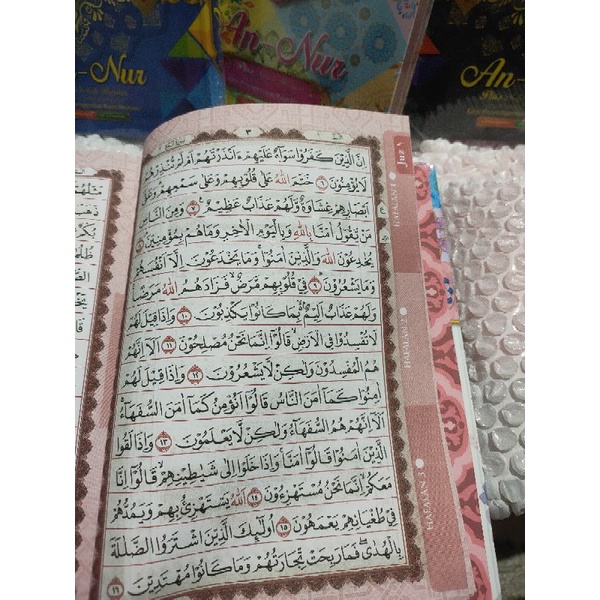 -Nur
An-Nur
An-
٣
اِنَّ الَّذِيْنَ كَفَرُوْا سَوَاۤءٌ عَلَيْهِمْ ءَاَنْذَرْتَهُمْ اَمْ لَمْ تُنْذِرْهُمْ
لَا يُؤْمِنُوْنَ ٦ خَتَمَ اللّٰهُ عَلٰى قُلُوْبِهِمْ وَعَلٰى سَمْعِهِمْ وَعَلٰٓى
اَبْصَارِهِمْ غِشَاوَةٌ وَّلَهُمْ عَذَابٌ عَظِيْمٌ ٧ وَمِنَ النَّاسِ
مَنْ يَّقُوْلُ اٰمَنَّا بِاللّٰهِ وَبِالْيَوْمِ الْاٰخِرِ وَمَا هُمْ بِمُؤْمِنِيْنَ ٨
يُخٰدِعُوْنَ اللّٰهَ وَالَّذِيْنَ اٰمَنُوْا وَمَا يَخْدَعُوْنَ اِلَّآ اَنْفُسَهُمْ
وَمَا يَشْعُرُوْنَ ٩ فِيْ قُلُوْبِهِمْ مَّرَضٌ فَزَادَهُمُ اللّٰهُ مَرَضًا
وَلَهُمْ عَذَابٌ اَلِيْمٌ بِمَا كَانُوْا يَكْذِبُوْنَ ١٠ وَاِذَا قِيْلَ لَهُمْ
لَا تُفْسِدُوْا فِى الْاَرْضِ قَالُوْٓا اِنَّمَا نَحْنُ مُصْلِحُوْنَ ١١ اَلَآ اِنَّهُمْ
هُمُ الْمُفْسِدُوْنَ وَلٰكِنْ لَّا يَشْعُرُوْنَ ١٢ وَاِذَا قِيْلَ لَهُمْ
اٰمِنُوْا كَمَآ اٰمَنَ النَّاسُ قَالُوْٓا اَنُؤْمِنُ كَمَآ اٰمَنَ السُّفَهَاۤءُ
اَلَآ اِنَّهُمْ هُمُ السُّفَهَاۤءُ وَلٰكِنْ لَّا يَعْلَمُوْنَ ١٣ وَاِذَا لَقُوا
الَّذِيْنَ اٰمَنُوْا قَالُوْٓا اٰمَنَّا وَاِذَا خَلَوْا اِلٰى شَيٰطِيْنِهِمْ قَالُوْٓا اِنَّا
مَعَكُمْ اِنَّمَا نَحْنُ مُسْتَهْزِءُوْنَ ١٤ اَللّٰهُ يَسْتَهْزِئُ بِهِمْ وَيَمُدُّهُمْ
فِيْ طُغْيَانِهِمْ يَعْمَهُوْنَ ١٥ اُولٰۤىِٕكَ الَّذِيْنَ اشْتَرَوُا الضَّلٰلَةَ
بِالْهُدٰى فَمَا رَبِحَتْ تِّجَارَتُهُمْ وَمَا كَانُوْا مُهْتَدِيْنَ ١٦
Juz ١
HAFALAN 1
HAFALAN 2
HAFALAN 3